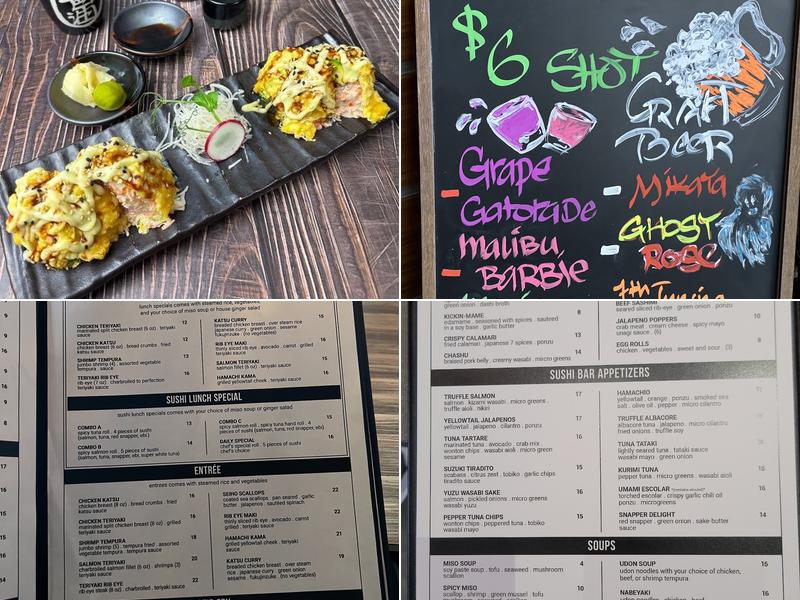 $6 SHOT
CRAFT
BEER
Grape
Gatorade
malibu
BARBIE
Mikata
GHOST
ROSE
lunch specials comes with steamed rice, vegetables,
and your choice of miso soup or house ginger salad
CHICKEN TERIYAKI 12
marinated split chicken breast (6 oz) . teriyaki
sauce
CHICKEN KATSU 12
chicken breast (6 oz) . bread crumbs . fried
katsu sauce
SHRIMP TEMPURA 13
jumbo shrimp (4) . assorted vegetable
tempura . tempura sauce
TERIYAKI RIB EYE 16
rib eye (7 oz) . charbroiled to perfection
teriyaki sauce
KATSU CURRY 15
breaded chicken breast . over steam rice
japanese curry . green onion . sesame
fukujinzuke . (no vegetables)
RIB EYE MAKI 16
thinly sliced rib eye . avocado . carrot . grilled
teriyaki sauce
SALMON TERIYAKI 15
salmon fillet (6 oz) . teriyaki sauce
HAMACHI KAMA 16
grilled yellowtail cheek . teriyaki sauce
SUSHI LUNCH SPECIAL
sushi lunch specials comes with your choice of miso soup or ginger salad
COMBO A 13
spicy tuna roll . 4 pieces of sushi
(salmon, tuna, red snapper, ebi)
COMBO B 14
spicy salmon roll . 5 pieces of sushi
(salmon, tuna, red snapper, ebi, super white tuna)
COMBO C 15
spicy salmon roll . spicy tuna hand roll . 4
pieces of sushi (salmon, tuna, red snapper, ebi)
DAILY SPECIAL 16
chef's special roll . 5 pieces of sushi
chef's choice
ENTRÉE
entrees comes with steamed rice and vegetables
CHICKEN KATSU 16
chicken breast (8 oz) . bread crumbs . fried
katsu sauce
CHICKEN TERIYAKI 16
marinated split chicken breast (8 oz) . grilled
teriyaki sauce
SHRIMP TEMPURA 18
jumbo shrimp (5) . tempura fried . assorted
vegetable tempura . tempura sauce
SALMON TERIYAKI 20
charbroiled salmon fillet (6 oz) . shrimpa (3)
teriyaki sauce
TERIYAKI RIB EYE 22
rib eye steak (8 oz) . charbroiled . teriyaki sauce
SEIHO SCALLOPS 22
coated sea scallops . pan seared . garlic
butter . jalapenos . sautéed spinach
RIB EYE MAKI 22
thinly sliced rib eye . avocado . carrot
grilled . teriyaki sauce
HAMACHI KAMA 21
grilled yellowtail cheek . teriyaki sauce
KATSU CURRY 19
breaded chicken breast . over steam
rice . japanese curry . green onion
sesame . fukujinzuke . (no vegetables)
green onion . dashi broth
KICKIN-MAME 8
edamame . seasoned with spices . sauteed
in a soy base . garlic butter
CRISPY CALAMARI 13
fried calamari . japanese 7 spices . ponzu
CHASHU 14
braised pork belly . creamy wasabi . micro greens
BEEF SASHIMI
seared sliced rib-eye . green onion . ponzu
JALAPENO POPPERS 10
crab meat . cream cheese . spicy mayo
unagi sauce . (6)
EGG ROLLS 8
chicken . vegetables . sweet and sour . (3)
SUSHI BAR APPETIZERS
TRUFFLE SALMON 17
salmon . kizami wasabi . micro greens .
truffle aioli . nikiri
YELLOWTAIL JALAPENOS 17
yellowtail . jalapeno . cilantro . ponzu
TUNA TARTARE 16
marinated tuna . avocado . crab mix .
wonton chips . micro green . micro green
sesame
SUZUKI TIRADITO 15
seabass . citrus zest . tobiko . garlic chips
tiradito sauce
YUZU WASABI SAKE 16
salmon . pickled onions . micro greens
wasabi yuzu
PEPPER TUNA CHIPS 15
wonton chips . peppered tuna . tobiko
wasabi mayo
HAMACHIO
yellowtail . orange . ponzu . smoked sea
salt . olive oil . pepper . micro cilantro
TRUFFLE ALBACORE
albacore tuna . jalapeno . micro cilantro
fried onions . truffle soy
TUNA TATAKI
lightly seared tuna . tataki sauce
wasabi mayo . green onion
KURIMI TUNA 16
pepper tuna . micro greens . wasabi aioli
UMAMI ESCOLAR 16
torched escolar . crispy garlic chili oil
ponzu . microgreens
SNAPPER DELIGHT 14
red snapper . green onion . sake-butter
sauce
SOUPS
MISO SOUP 4
soy paste soup . tofu . seaweed . mushroom
scallion
SPICY MISO 10
scallop . shrimp . green mussel . tofu
UDON SOUP 15
udon noodles with your choice of chicken,
beef, or shrimp tempura
NABEYAKI 16